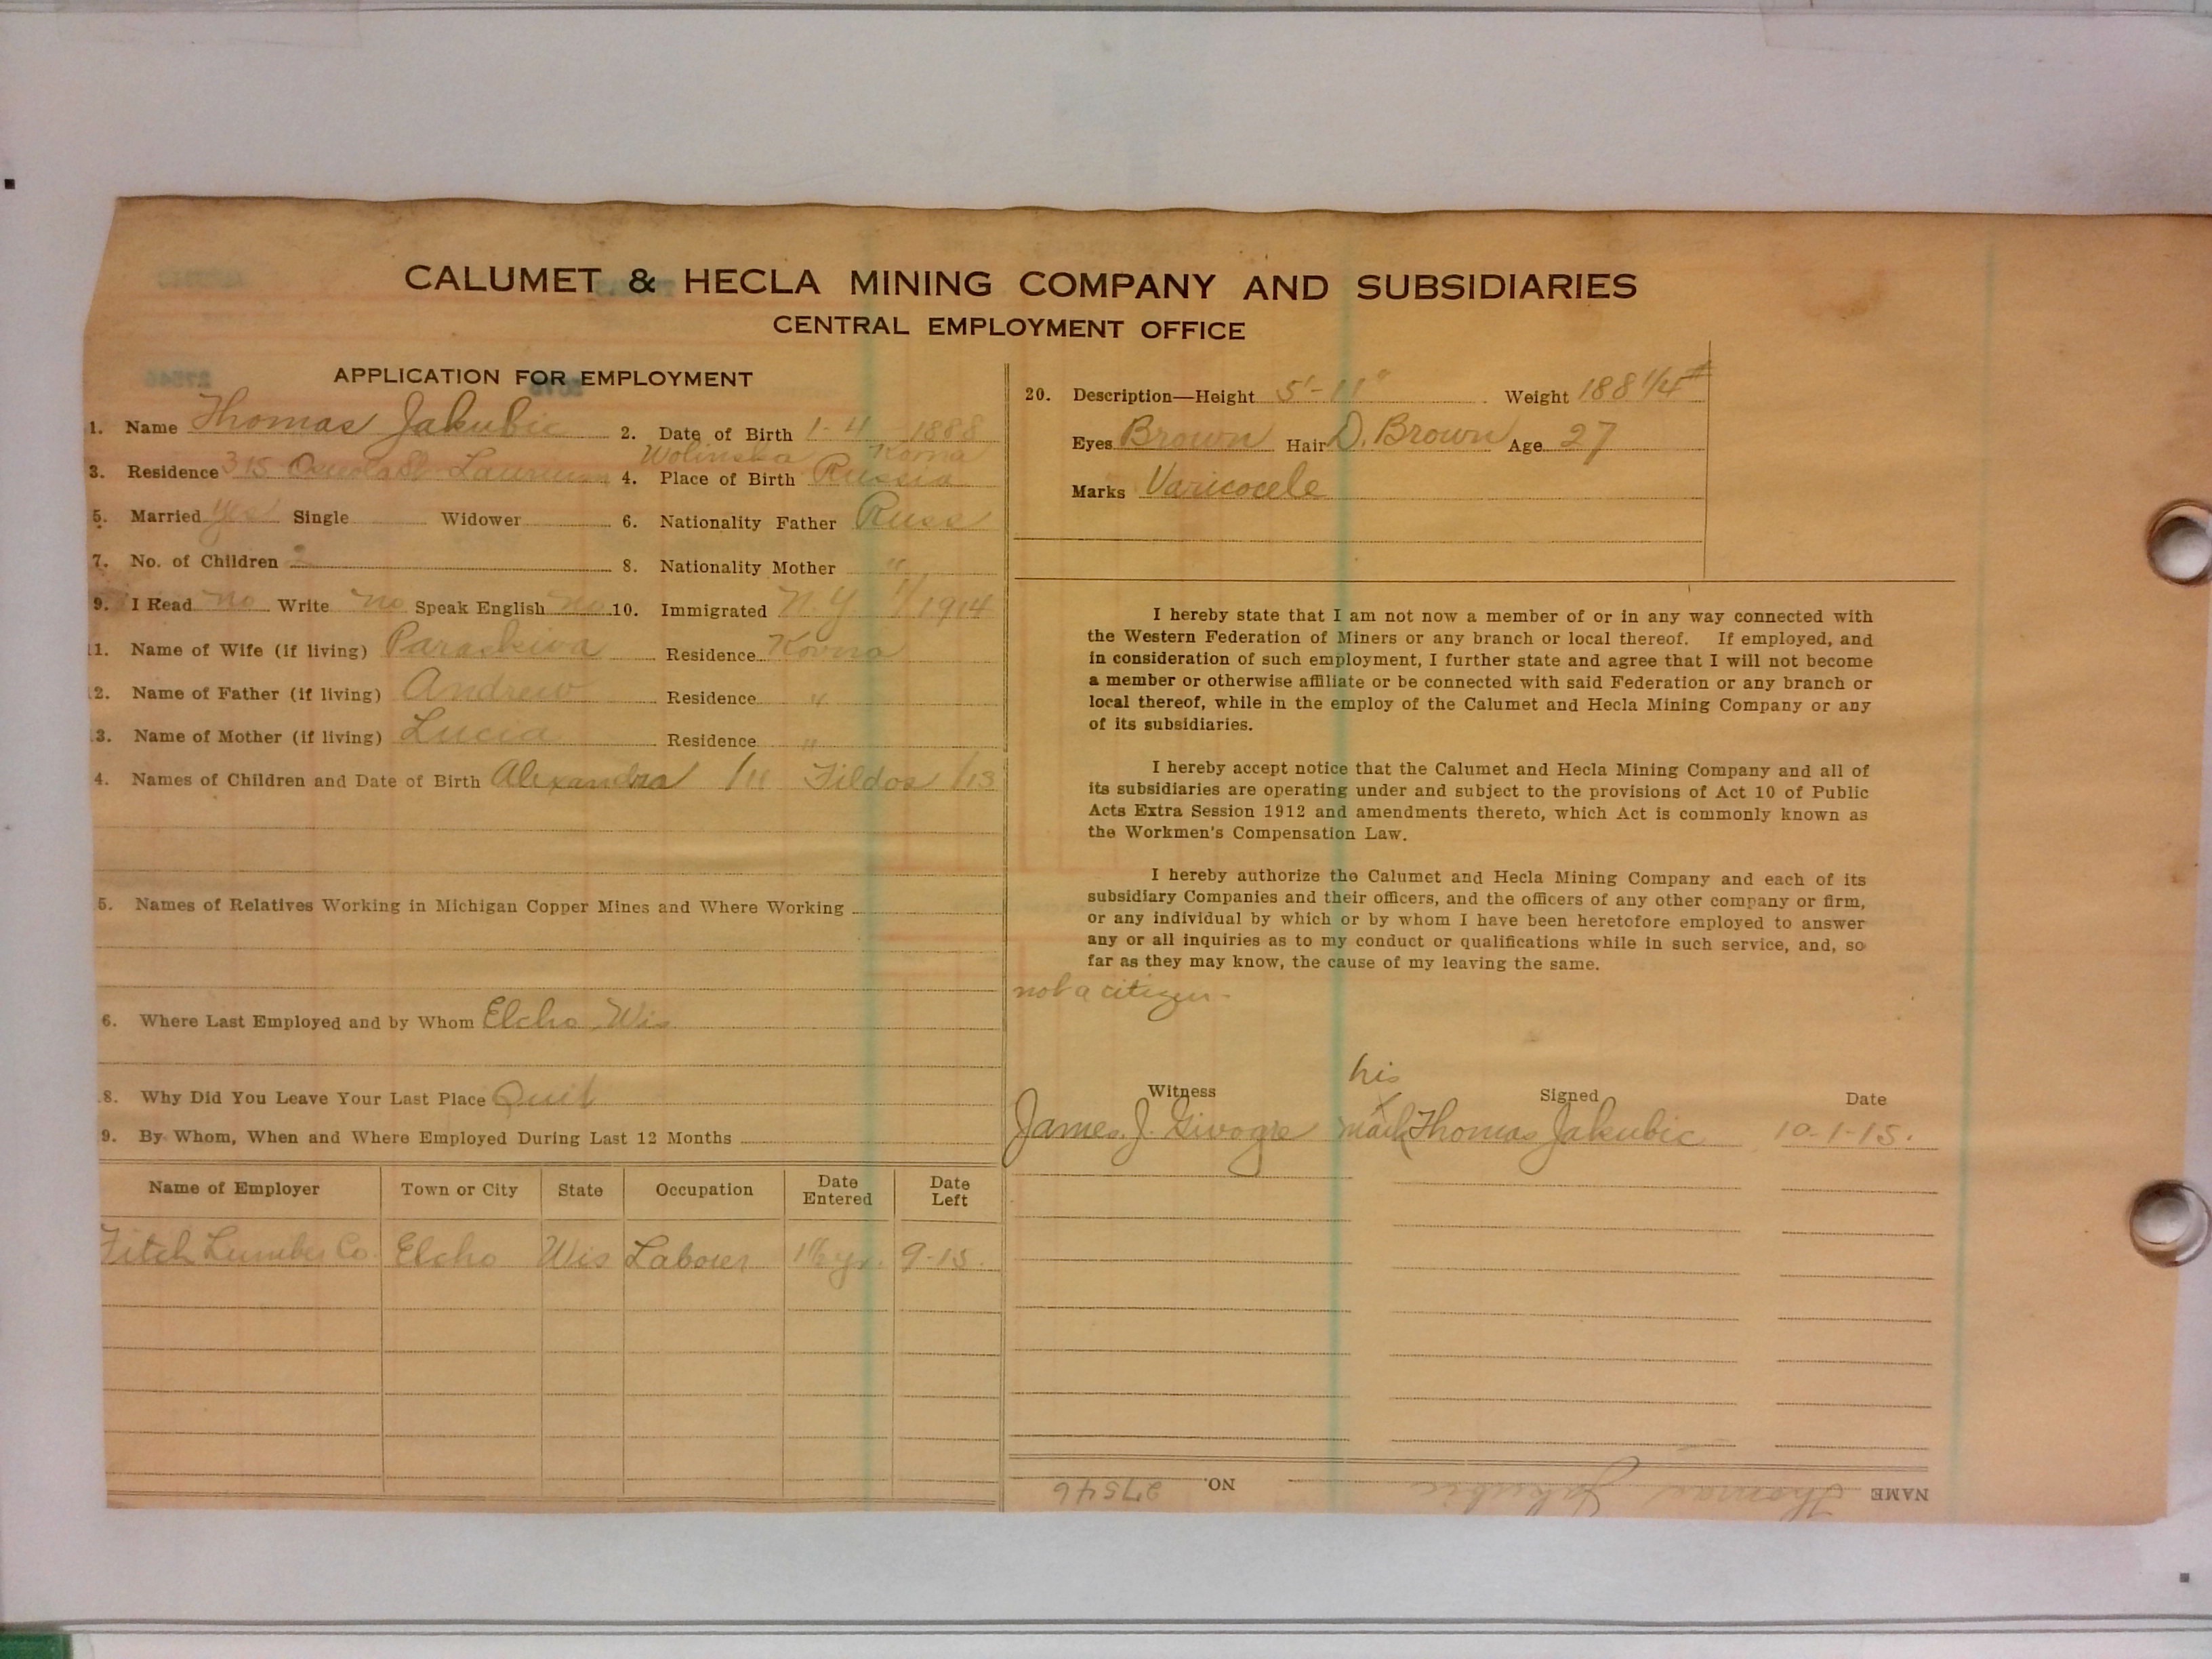 CALUMET & HECLA MINING COMPANY AND SUBSIDIARIES
CENTRAL EMPLOYMENT OFFICE
APPLICATION FOR EMPLOYMENT
1. Name Thomas Jakubic 2. Date of Birth 1-4 1888
Wolinska Kovna
3. Residence 315 Osceola St Laurium 4. Place of Birth Russia
5. Married Yes Single Widower 6. Nationality Father Russ
7. No. of Children 2 8. Nationality Mother "
9. I Read no Write no Speak English no 10. Immigrated N.Y. 1914
11. Name of Wife (if living) Paraskiva Residence Kovna
12. Name of Father (if living) Andrew Residence "
3. Name of Mother (if living) Lucia Residence "
4. Names of Children and Date of Birth Alexandra /11 Fildos /13
5. Names of Relatives Working in Michigan Copper Mines and Where Working
6. Where Last Employed and by Whom Elcho, Wis
8. Why Did You Leave Your Last Place Quit
9. By Whom, When and Where Employed During Last 12 Months
Name of Employer Town or City State Occupation Date Entered Date Left
Fitch Lumber Co. Elcho Wis Laborer yr. 9-15.
20. Description—Height 5'-11" Weight 188 1/4 #
Eyes Brown Hair D. Brown Age 27
Marks Varicocele
I hereby state that I am not now a member of or in any way connected with
the Western Federation of Miners or any branch or local thereof. If employed, and
in consideration of such employment, I further state and agree that I will not become
a member or otherwise affiliate or be connected with said Federation or any branch or
local thereof, while in the employ of the Calumet and Hecla Mining Company or any
of its subsidiaries.
I hereby accept notice that the Calumet and Hecla Mining Company and all of
its subsidiaries are operating under and subject to the provisions of Act 10 of Public
Acts Extra Session 1912 and amendments thereto, which Act is commonly known as
the Workmen's Compensation Law.
I hereby authorize the Calumet and Hecla Mining Company and each of its
subsidiary Companies and their officers, and the officers of any other company or firm,
or any individual by which or by whom I have been heretofore employed to answer
any or all inquiries as to my conduct or qualifications while in such service, and, so
far as they may know, the cause of my leaving the same.
not a citizen -
his
Witness Signed Date
James. J. Givogre X mark Thomas Jakubic 10-1-15.
NAME Thomas Jakubic NO. 27546